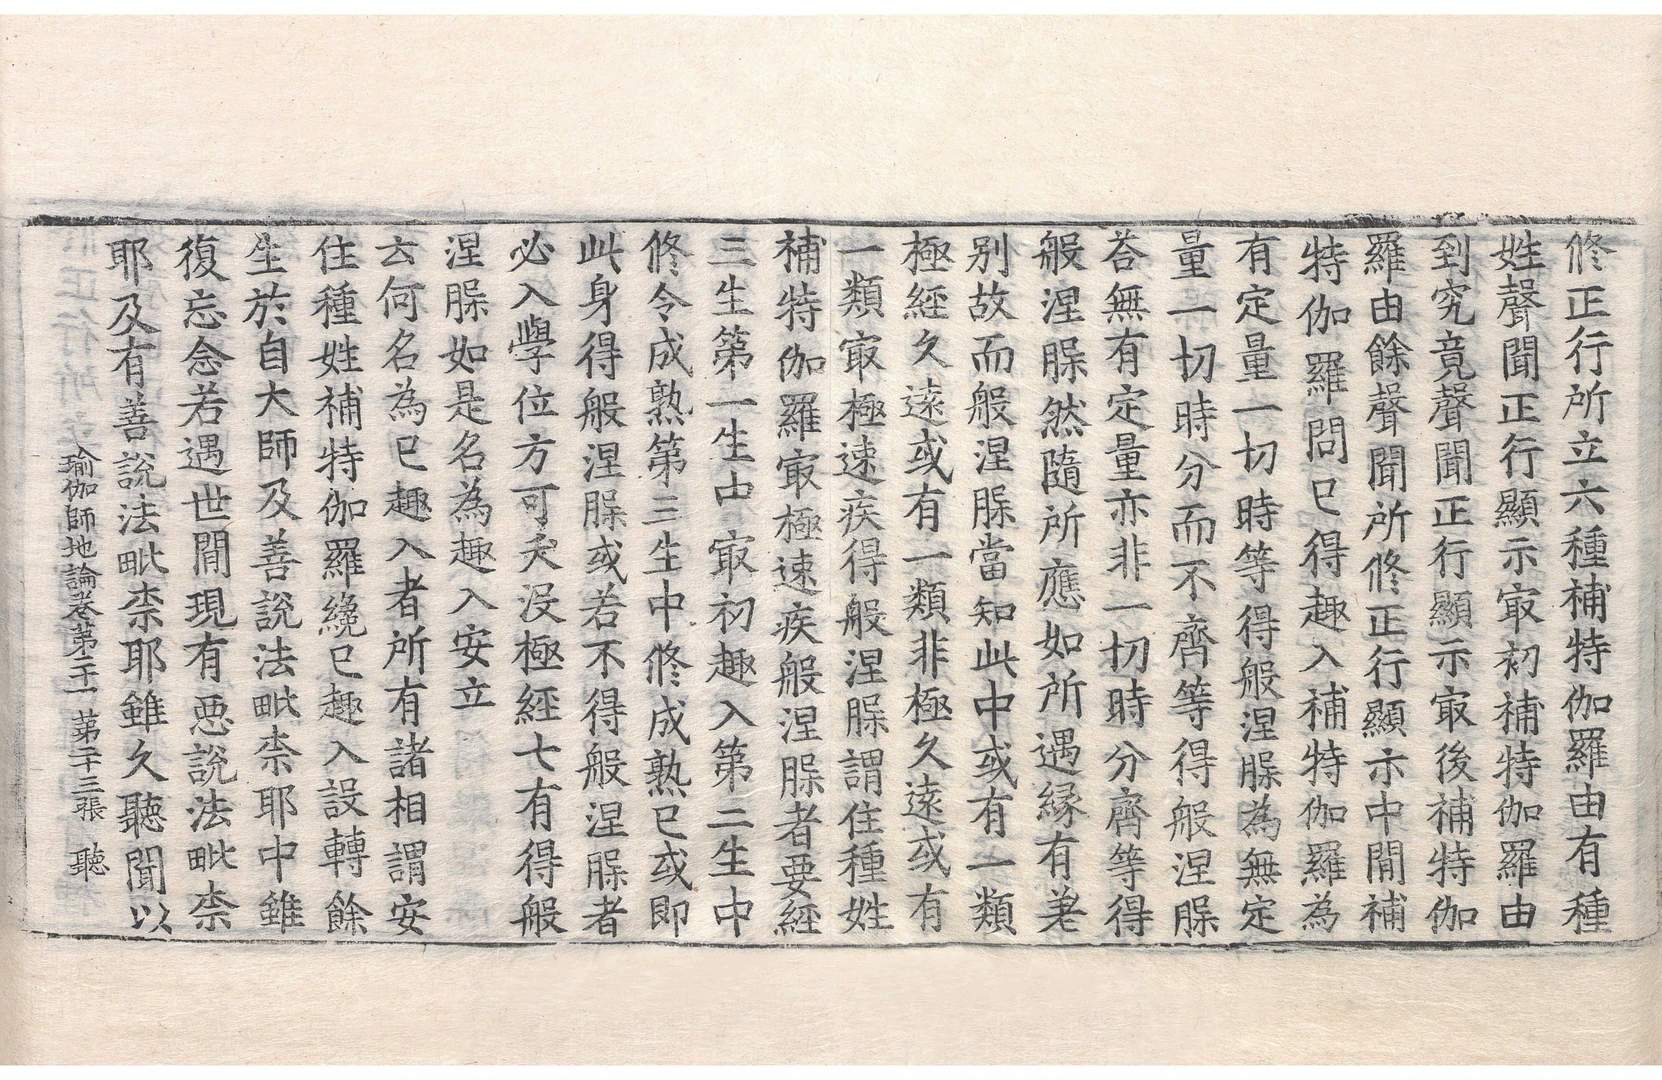 修正行所立六種補特伽羅由有種
姓聲聞正行顯示㝡初補特伽羅由
到究竟聲聞正行顯示㝡後補特伽
羅由餘聲聞所修正行顯示中間補
特伽羅問已得趣入補特伽羅為
有定量一切時等得般涅槃為無定
量一切時分而不齊等得般涅槃
荅無有定量亦非一切時分齊等得
般涅槃然隨所應如所遇緣有差
別故而般涅槃當知此中或有一類
極經久遠或有一類非極久遠或有
一類㝡極速疾得般涅槃謂住種姓
補特伽羅㝡極速疾般涅槃者要經
三生第一生中㝡初趣入第二生中
修令成熟第三生中修成熟已或即
此身得般涅槃或若不得般涅槃者
必入學位方可夭沒極經七有得般
涅槃如是名為趣入安立
云何名為已趣入者所有諸相謂安
住種姓補特伽羅纔已趣入設轉餘
生於自大師及善說法毗柰耶中雖
復忘念若遇世間現有惡說法毗柰
耶及有善說法毗柰耶雖久聽聞以
瑜伽師地論卷第二十一 第二十三張 聽